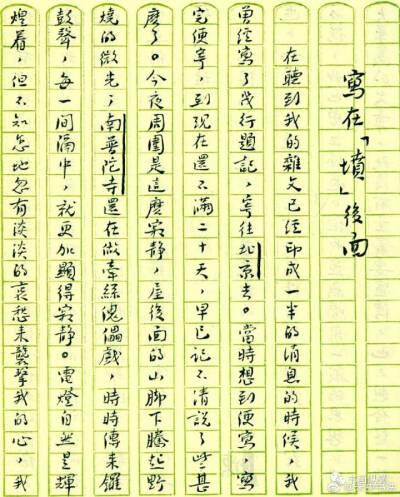 寫在「墳」後面
在聽到我的雜文已經印成一半的消息的時候，我
曾經寫了幾行題記，寄往北京去。當時想到便寫，寫
完便寄，到現在還不滿二十天，早已記不清說了些甚
麼了。今夜周圍是這麼寂靜，屋後面的山腳下騰起野
燒的微光；南普陀寺還在做牽絲傀儡戲，時時傳來鑼
鼓聲，每一間隔中，就更加顯得寂靜。電燈自然是輝
煌着，但不知怎地忽有淡淡的哀愁來襲擊我的心，我